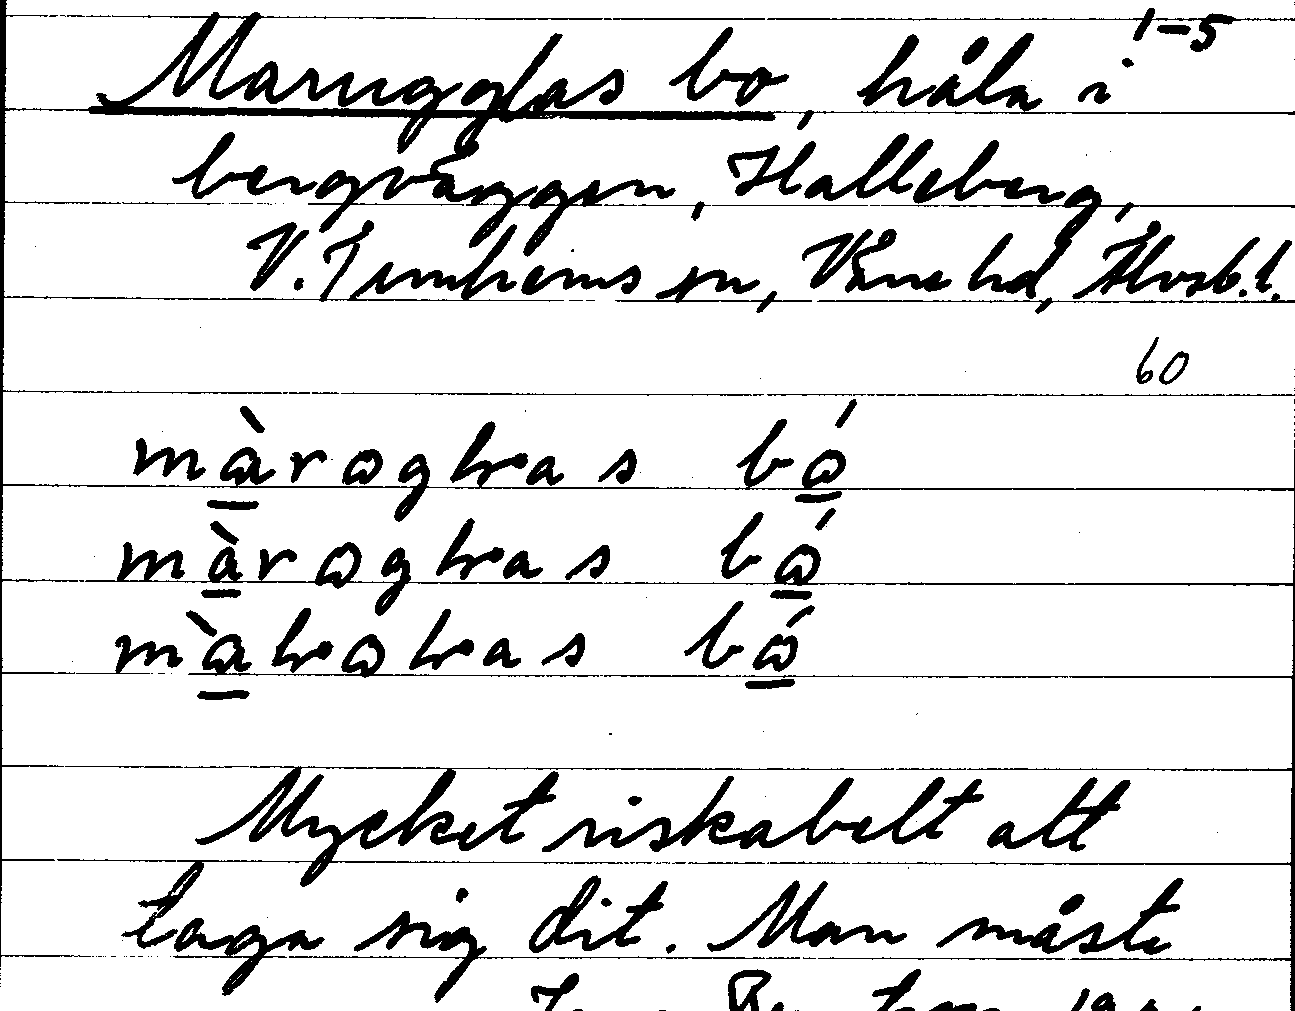 1-5
Marugglas bo, håla i
bergväggen, Halleberg,
V. Tunhems sn, Väne hd, Älvsb. l.
60
màroglas bó
màroglas bó
màlolas bó
Mycket riskabelt att
taga sig dit. Man måste